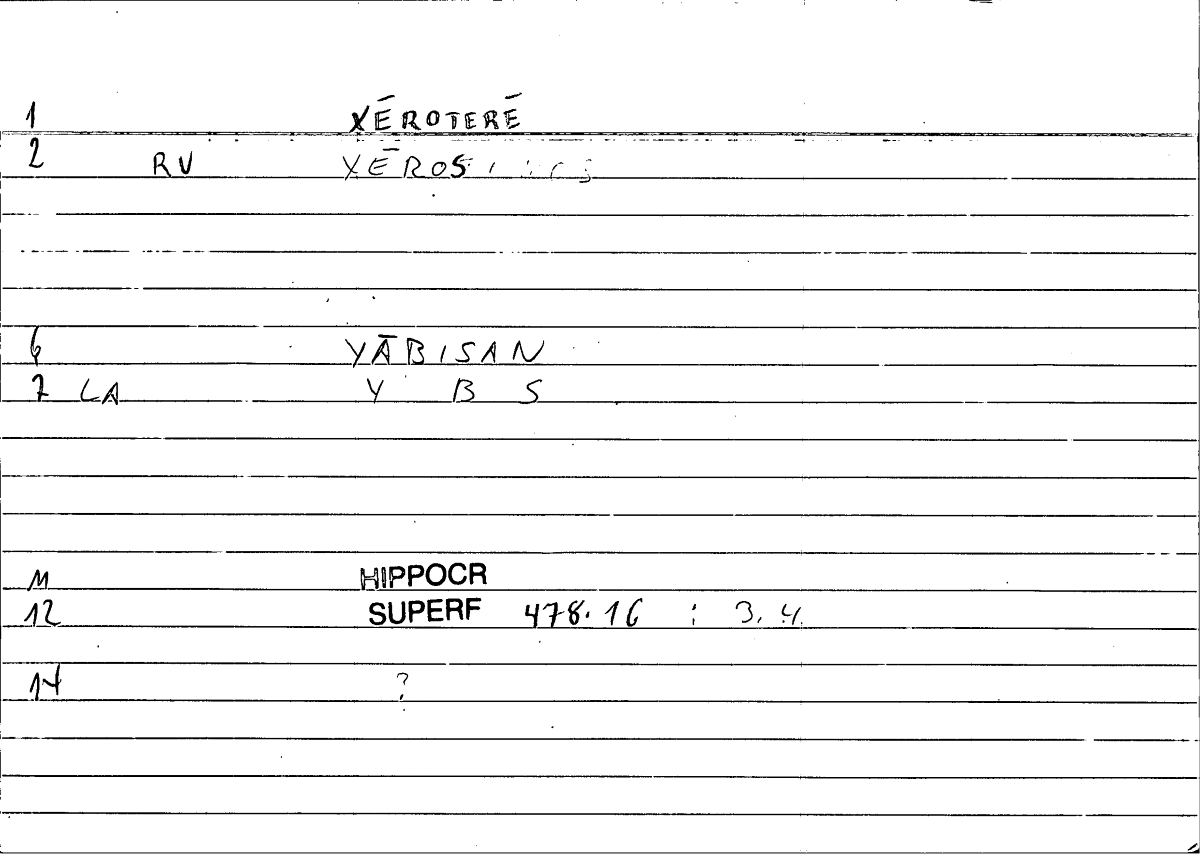 1 XĒROTERĒ
2 RV
6 YĀBISAN
7 LA Y B S
11 HIPPOCR
12 SUPERF 478.16 : 3.4.
14 ?